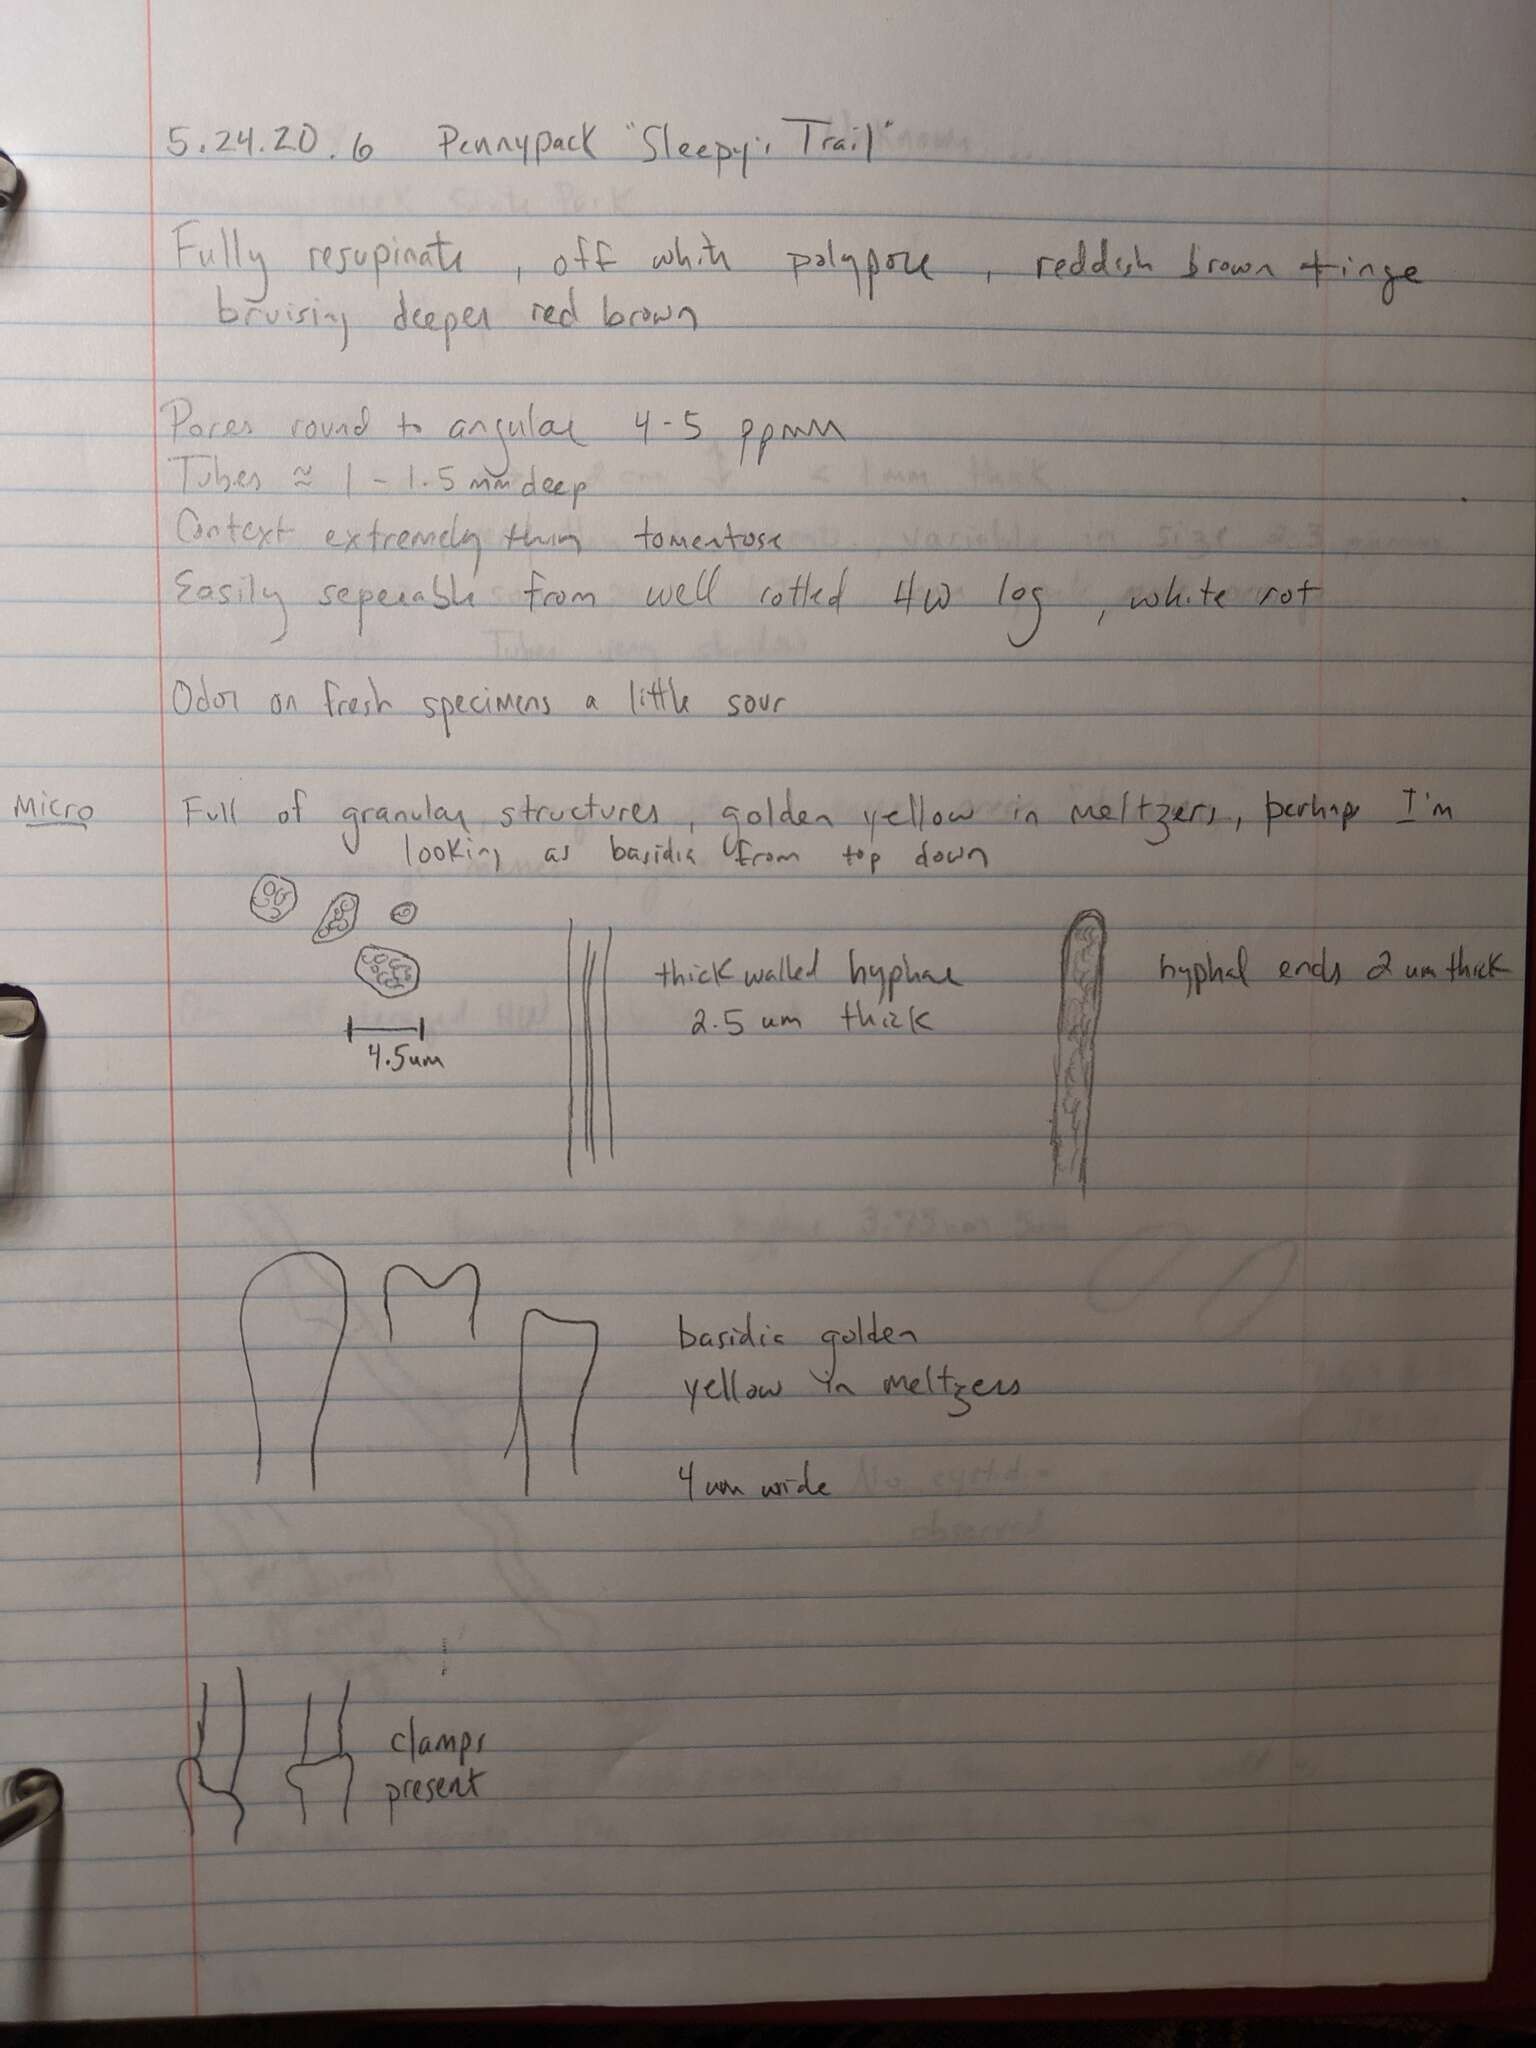 5.24.20.6 Pennypack "Sleepy's Trail"
Fully resupinate, off white polypore, reddish brown tinge
bruising deeper red brown
Pores round to angular 4-5 ppmm
Tubes ≈ 1-1.5 mm deep
Context extremely thin tomentose
Easily seperable from well rotted HW log, white rot
Odor on fresh specimens a little sour
Micro Full of granular structures, golden yellow in meltzers, perhaps I'm
looking as basidia from top down
thick walled hyphae
2.5 um thick
hyphal ends 2 um thick
4.5um
basidia golden
yellow in meltzers
4 um wide
clamps
present